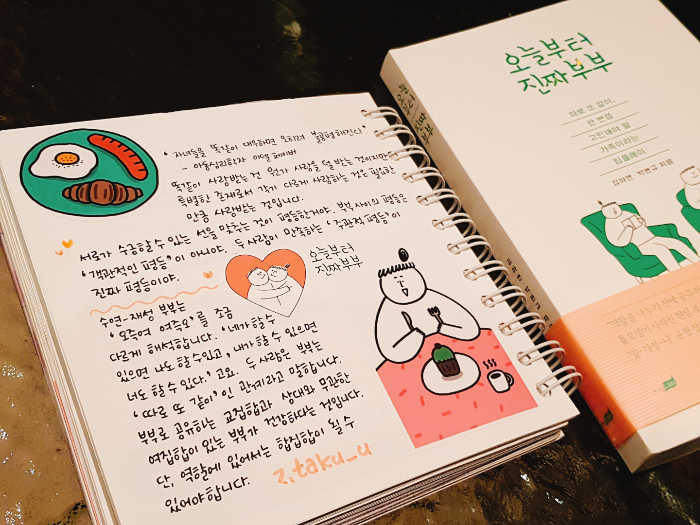 "자녀들을 똑같이 대우하면 오히려 불공평해진다"
- 아동심리학자 아델 페이버
똑같이 사랑받는건 뭔가 사랑을 덜 받는 것이지만
특별한 존재로서 각기 다르게 사랑하는것은 필요한
만큼 사랑받는 것입니다.
서로가 수긍할수 있는 선을 맞추는 것이 평등한거야. 부부 사이의 평등은
'객관적인 평등'이 아니야. 두사람이 만족하는 '주관적 평등'이
진짜 평등이야.
오늘부터
진짜부부
수연-재성 부부는
'오족여 여족오'를 조금
다르게 해석합니다. '네가 할수
있으면 나도 할수있고, 내가 할 수 있으면
너도 할 수 있다.' 고요. 두 사람은 부부는
'따로 또 같이'인 관계라고 말합니다.
부부로 공유하는 교집합과 상대와 무관한
여집합이 있는 부부가 건강하다는 것입니다.
단, 역할에 있어서는 합집합이 될 수
있어야합니다.
z.taku_u
오늘부터
진짜부부
따로 또 같이,
한 번쯤
고민해야 할
가족이라는
팀플레이
김아연, 박현규 지음
오늘부터 진짜부부